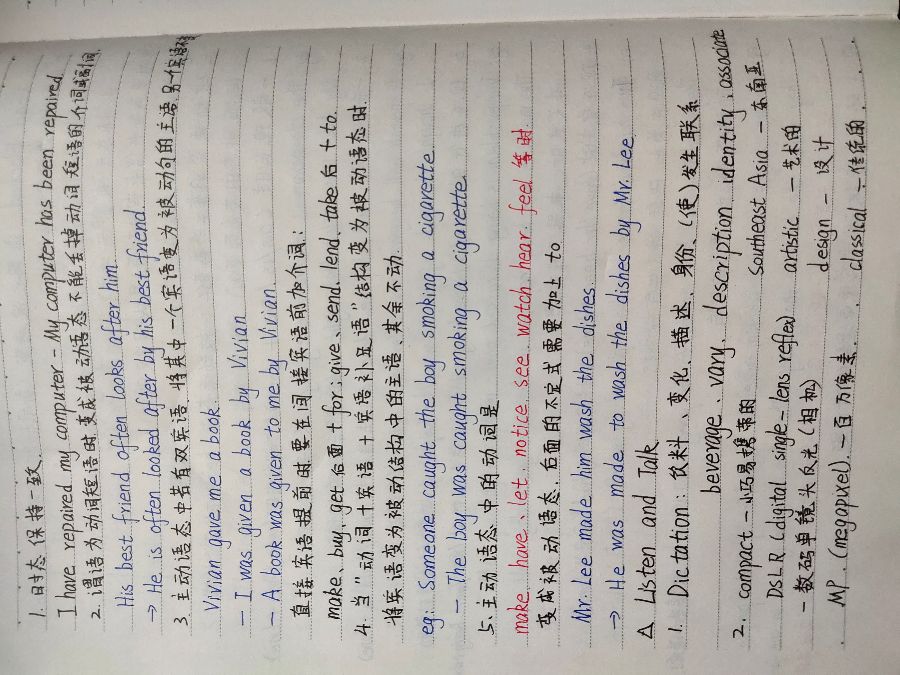 1. 时态保持一致
I have repaired my computer - My computer has been repaired
2. 谓语为动词短语时, 变成被动语态不能丢掉动词短语的介词或副词
His best friend often looks after him.
→ He is often looked after by his best friend.
3 主动语态中若有双宾语, 将其中一个宾语变为被动句的主语, 另一个宾语不变
Vivian gave me a book.
- I was given a book by Vivian
- A book was given to me by Vivian.
直接宾语提前时要在间接宾语前加介词:
make、buy、get 后面 + for; give、send、lend、take 后 + to.
4. 当"动词 + 宾语 + 宾语补足语"结构变为被动语态时
将宾语变为被动结构中的主语、其余不动.
eg: Someone caught the boy smoking a cigarette.
- The boy was caught smoking a cigarette.
5. 主动语态中的动词是
make、have、let、notice、see、watch、hear、feel 等时.
变成被动语态, 后面的不定式需要加上 to
Mr. Lee made him wash the dishes
→ He was made to wash the dishes by Mr. Lee.
△ Listen and Talk
1. Dictation: 饮料、变化、描述、身份、(使)发生联系
beverage、vary、description identity、associate
2. compact - 小巧易携带的 Southeast Asia - 东南亚
DSLR (digital single-lens reflex) artistic - 艺术的
- 数码单镜头反光(相机) design - 设计
MP. (megapixel). 一百万像素. classical - 传统的